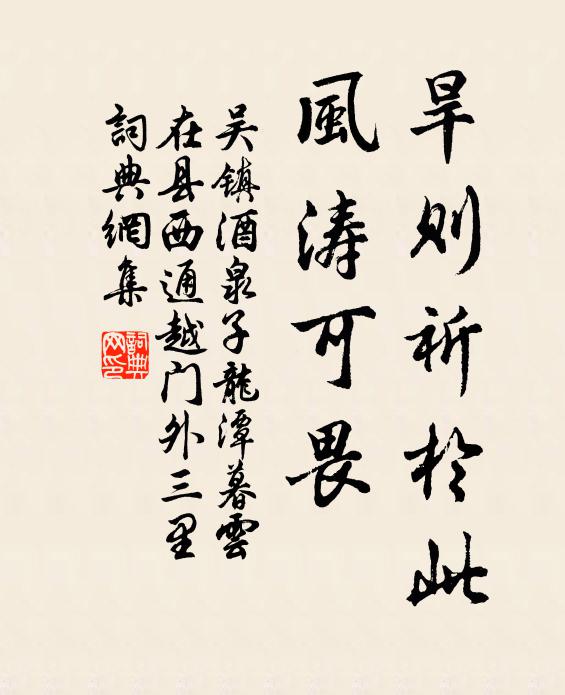 旱则祈於此
風涛可畏
吴镇酒泉子龍潭暮雲
在县西通越门外三里
詞典網集
詞典网印